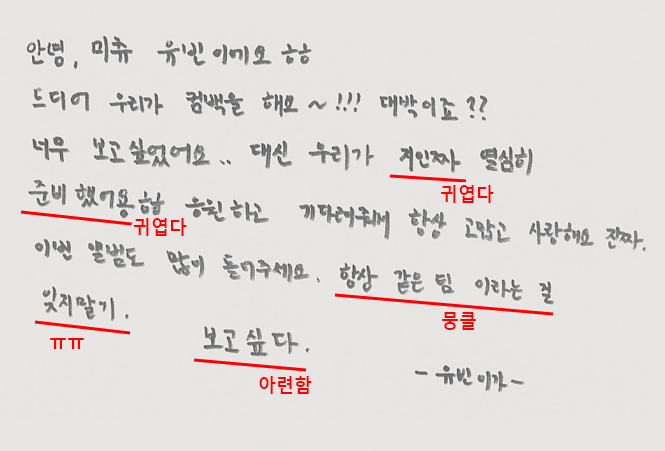 안녕, 미츄 유빈이에요 ㅎㅎ
드디어 우리가 컴백을 해요~!!! 대박이죠??
너무 보고싶었어요.. 대신 우리가 지인짜 열심히
귀엽다
준비했어용 헙 응원하고 기다려줘서 항상 고맙고 사랑해요 진짜.
귀엽다
이번 앨범도 많이 들어주세요. 항상 같은 팀 이라는 걸
뭉클
잊지말기.
ㅠㅠ
보고싶다.
아련함
- 유빈이가 -